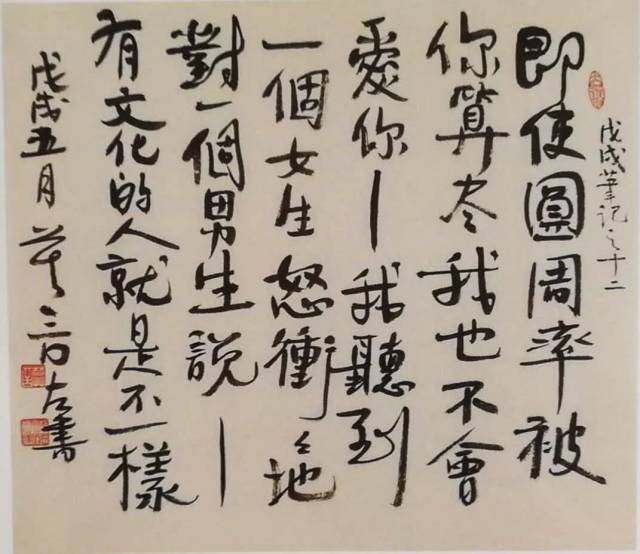 戊戌筆記之十二
即使圓周率被
你算尽我也不會
愛你—我聽到
一個女生怒衝々地
對一個男生說—
有文化的人就是不一樣
戊戌五月
左書